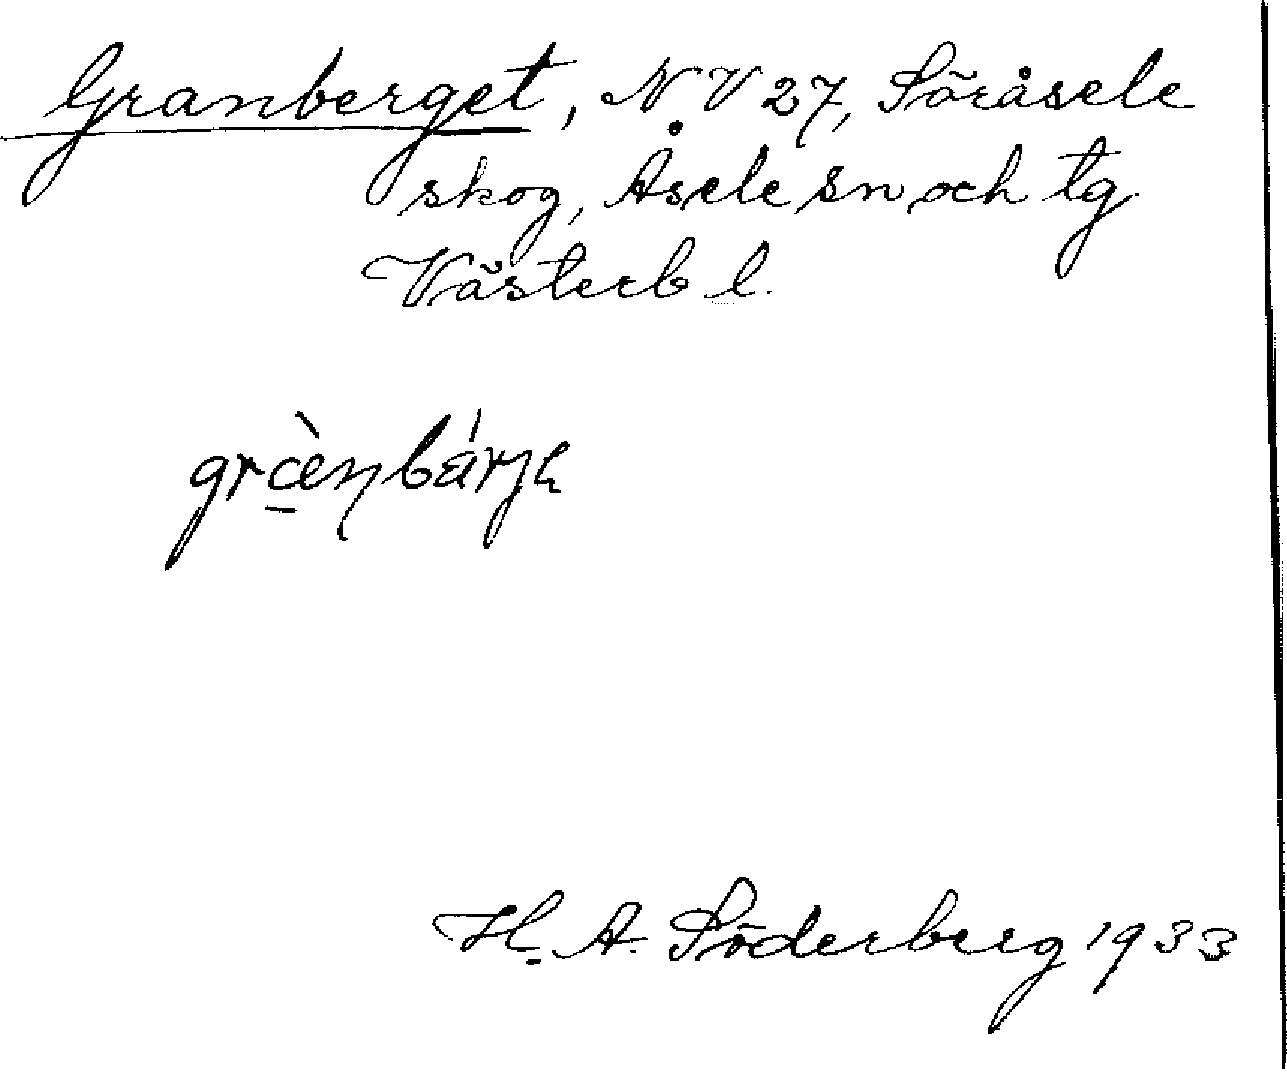 Granberget, NV 27, Söråsele
skog, Åsele sn och tg
Västerb l.
H. A. Söderberg 1933